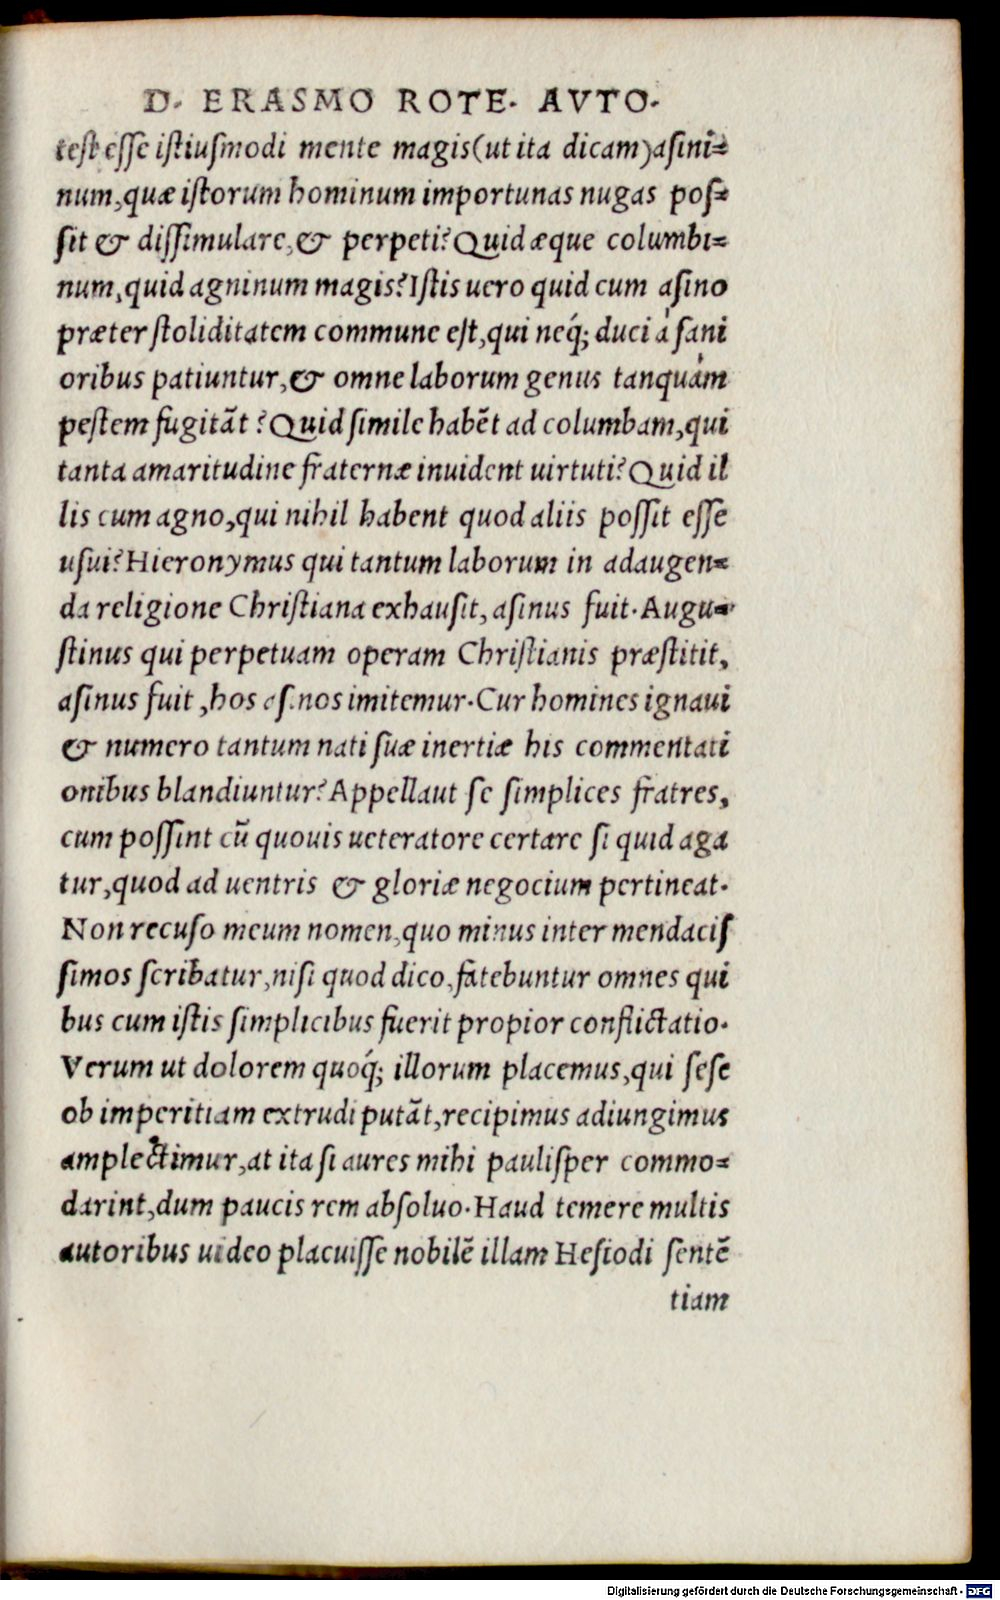 D. ERASMO ROTE. AVTO.
test esse istiusmodi mente magis(ut ita dicam)asini=
num,quæ istorum hominum importunas nugas pos=
sit & dissimulare,& perpeti? Quid æque columbi=
num,quid agninum magis? Istis uero quid cum asino
præter stoliditatem commune est,qui neq́; duci à sani
oribus patiuntur,& omne laborum genus tanquàm
pestem fugitāt? Quid simile habēt ad columbam,qui
tanta amaritudine fraternæ inuident uirtuti? Quid il
lis cum agno,qui nihil habent quod aliis possit esse
usui? Hieronymus qui tantum laborum in adaugen=
da religione Christiana exhausit, asinus fuit. Augu=
stinus qui perpetuam operam Christianis præstitit,
asinus fuit ,hos asinos imitemur. Cur homines ignaui
& numero tantum nati suæ inertiæ his commentati
onibus blandiuntur? Appellaut se simplices fratres,
cum possint cū quouis ueteratore certare si quid aga
tur,quod ad uentris & gloriæ negocium pertineat.
Non recuso meum nomen,quo minus inter mendacis
simos scribatur,nisi quod dico,fatebuntur omnes qui
bus cum istis simplicibus fuerit propior conflictatio.
Verum ut dolorem quoq́; illorum placemus,qui sese
ob imperitiam extrudi putāt,recipimus adiungimus
amplectimur,at ita si aures mihi paulisper commo=
darint,dum paucis rem absoluo. Haud temere multis
autoribus uideo placuisse nobilē illam Hesiodi sentē
tiam
Digitalisierung gefördert durch die Deutsche Forschungsgemeinschaft - DFG